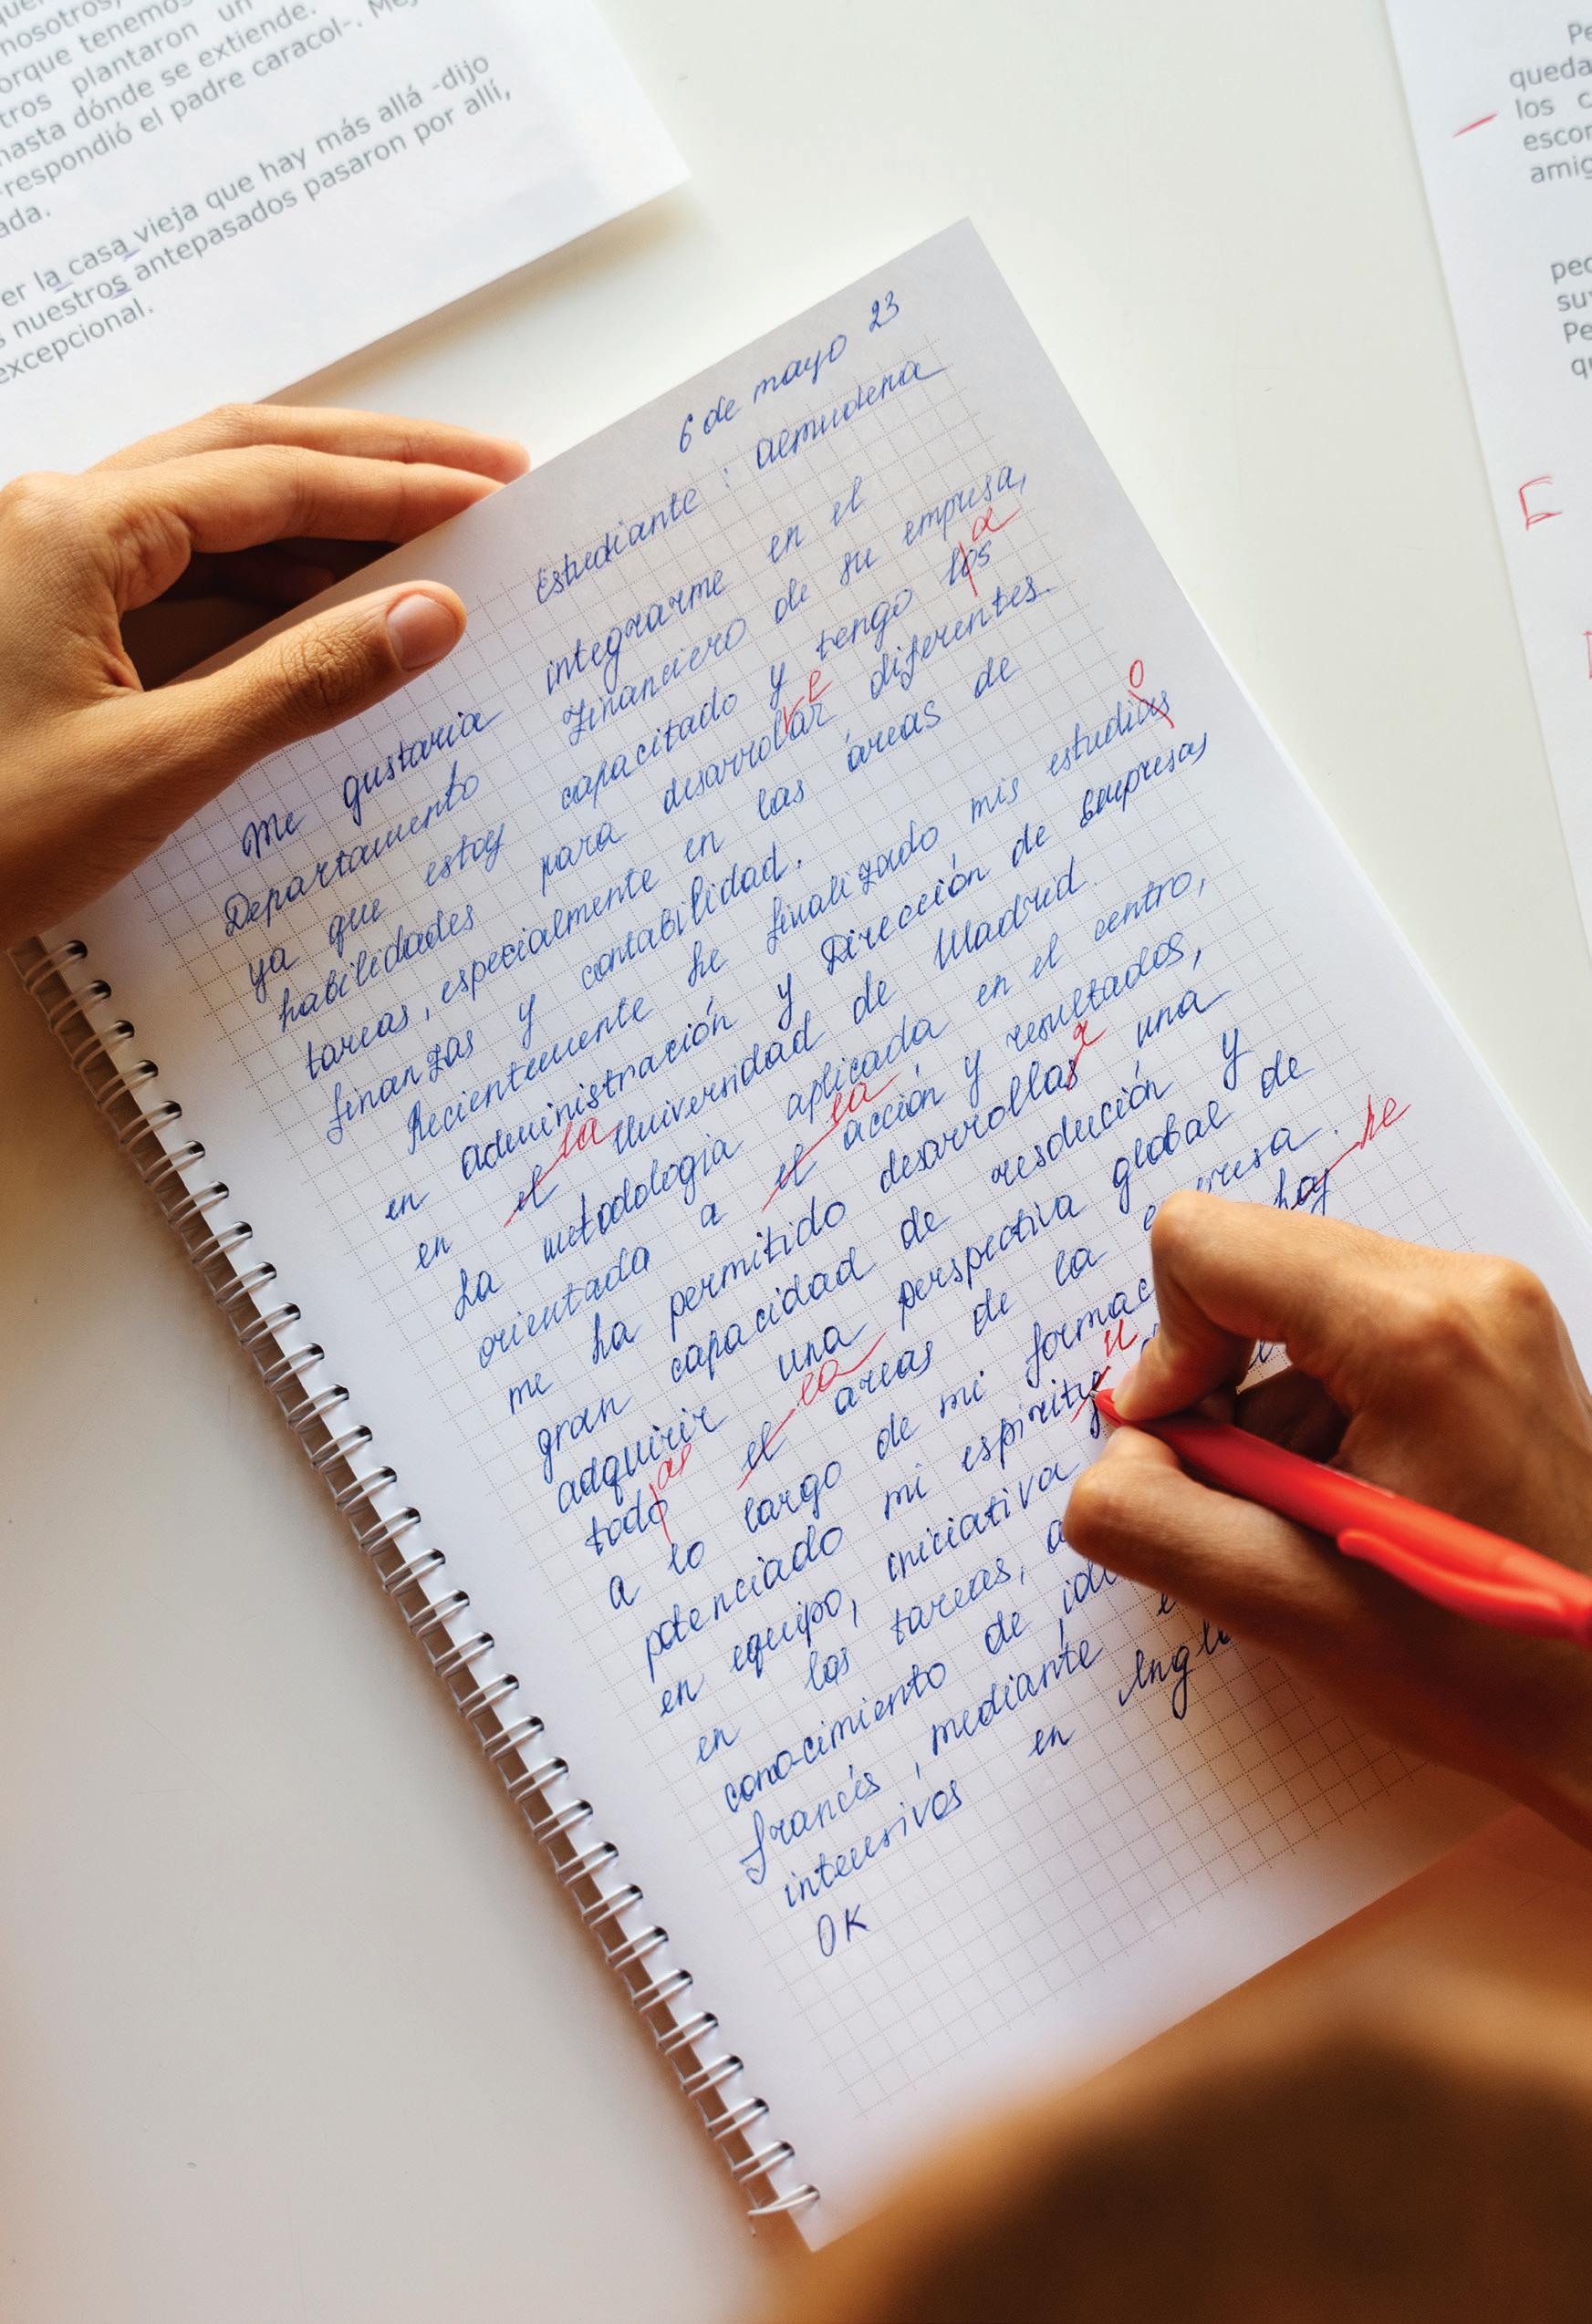 nosotros,
orque tenemos
tros plantaron un
hasta dónde se extiende.
-respondió el padre caracol-.
ada.
er la casa vieja que hay más allá -dijo
s nuestros antepasados pasaron por allí,
excepcional.
6 de mayo 23
Estudiante: Almudena
Me gustaria integrarme en el
Departamento Financiero de su empresa,
ya que estoy capacitado y tengo los a
habilidades para desarrolar diferentes.
tareas, especialmente en las áreas de
finanzas y contabilidad.
Recientemente he finalizado mis estudios o
en administración y Dirección de Empresas
en el la Universidad de Madrid.
La metodologia aplicada en el centro,
orientada a el la acción y resultados,
me ha permitido desarrollas r una
gran capacidad de resolución y
adquirir una perspectiva global de
todo as el la áreas de la empresa.
a lo largo de mi formac hay he
potenciado mi espiritu u
en equipo, iniciativa
en las tareas, a
conocimiento de idi
francés, mediante
intensivos en Ingl
OK
Pe
queda
los c
escor
amig
pec
su
Pe
qu
E